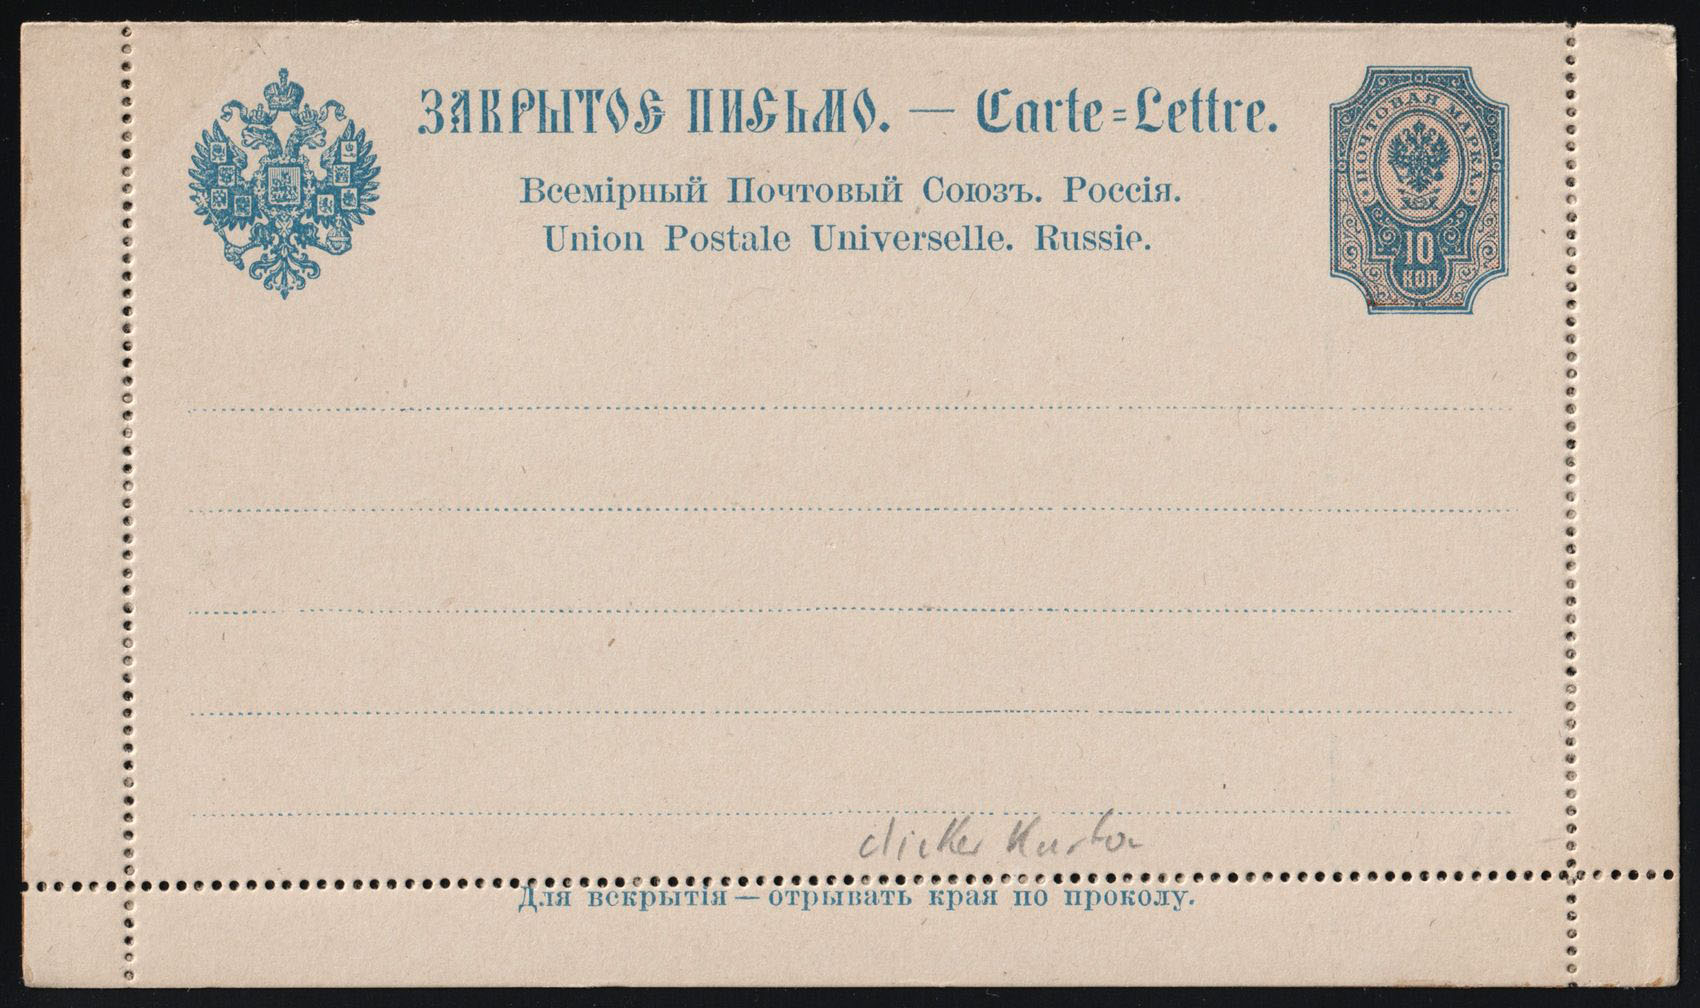 ЗАКРЫТОЕ ПИСЬМО. — Carte=Lettre.
Всемірный Почтовый Союзъ. Россія.
Union Postale Universelle. Russie.
ПОЧТОВАЯ МАРКА
10
КОП
dicker Karton
Для вскрытія — отрывать края по проколу.